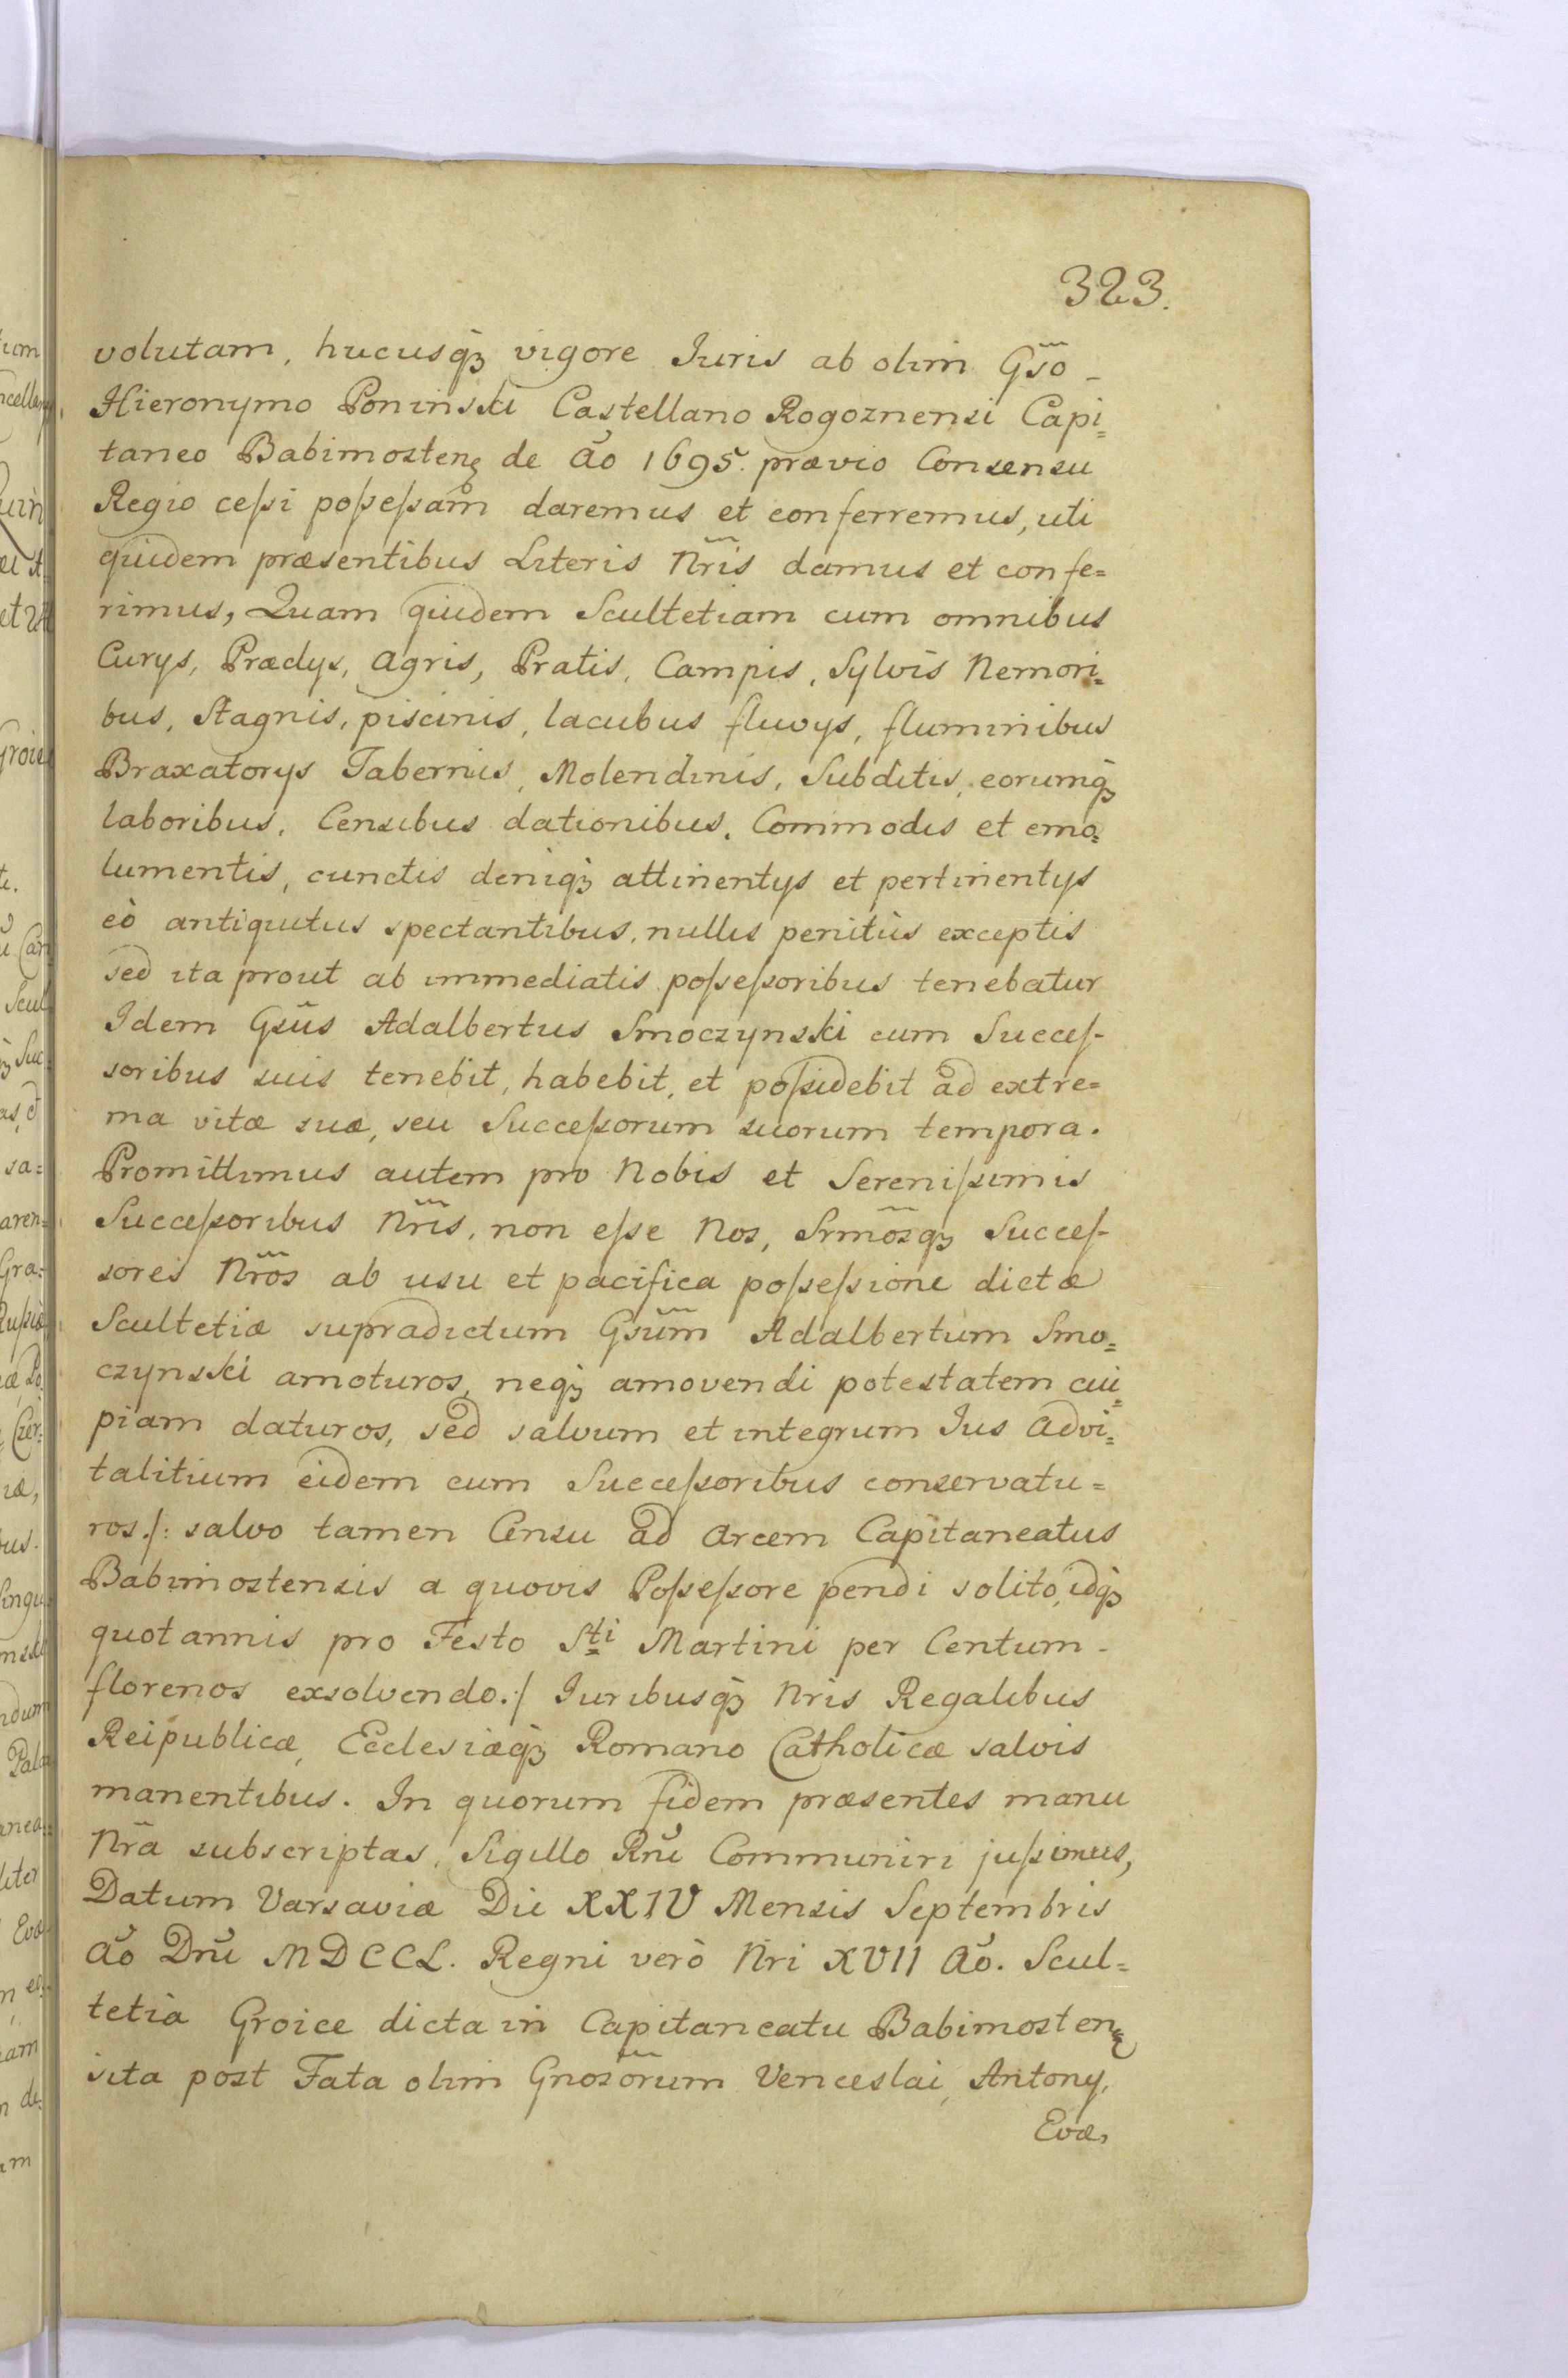 323.
volutam, hucusq́ꝫ vigore Iuris ab olim Gs̃o _
Hieronymo Poninski Castellano Rogoznensi Capi=
taneo Babimostenȩ de Aõ 1695. prævio Consensu
Regio ceſsi poſseſsam daremus et conferremus, uti
quidem præsentibus Literis Nr̃is damus et confe=
rimus, Quam quidem Scultetiam cum omnibus
Curys, Prædys, Agris, Pratis, Campis, Sylvis Nemori=
bus, Stagnis, piscinis, lacubus fluvys, fluminibus
Braxatorys Tabernis, Molendinis, Subditis, eorumq́ꝫ
laboribus, Censibus dationibus, Commodis et emo=
lumentis, cunctis deniq́ꝫ attinentys et pertinentys
eò antiquitus spectantibus, nullis penitùs exceptis
sed ita prout ab immediatis poſseſsoribus tenebatur
Idem Gsũs Adalbertus Smoczynski cum Succeſ-
soribus suis tenebit, habebit, et poſsidebit ad extre=
ma vitæ suæ, seu Succeſsorum suorum tempora.
Promittimus autem pro Nobis et Sereniſsimis
Succeſsoribus Nr̃is, non eſse Nos, Srmõsqꝫ Succeſ-
sores Nr̃os ab usu et pacifica poſseſsione dictæ
Scultetiæ supradictum Gsũm Adalbertum Smo=
czynski amoturos, neqꝫ amovendi potestatem cui=
piam daturos, sed salvum et integrum Ius Advi=
talitium eidem cum Succeſsoribus conservatu=
ros./: salvo tamen Censu ad Arcem Capitaneatus
Babimostensis a quovis Poſseſsore pendi solito, idq́ꝫ
quotannis pro Festo Sti Martini per Centum -
florenos exsolvendo./ Iuribusq́ꝫ Nris Regalibus
Reipublicæ, Ecclesiæq́ꝫ Romano Catholicæ salvis
manentibus. In quorum fidem præsentes manu
Nr̃a subscriptas, Sigillo Rñi Communiri juſsimus,
Datum Varsaviæ Die XXIV Mensis Septembris
Aõ Dñi MDCCL. Regni verò Nri XVII Aõ. Scul=
tetia Groice dicta in Capitaneatu Babimostenȩ
sita post Fata olim Gnosõrum Venceslai, Antony,
Evæ,